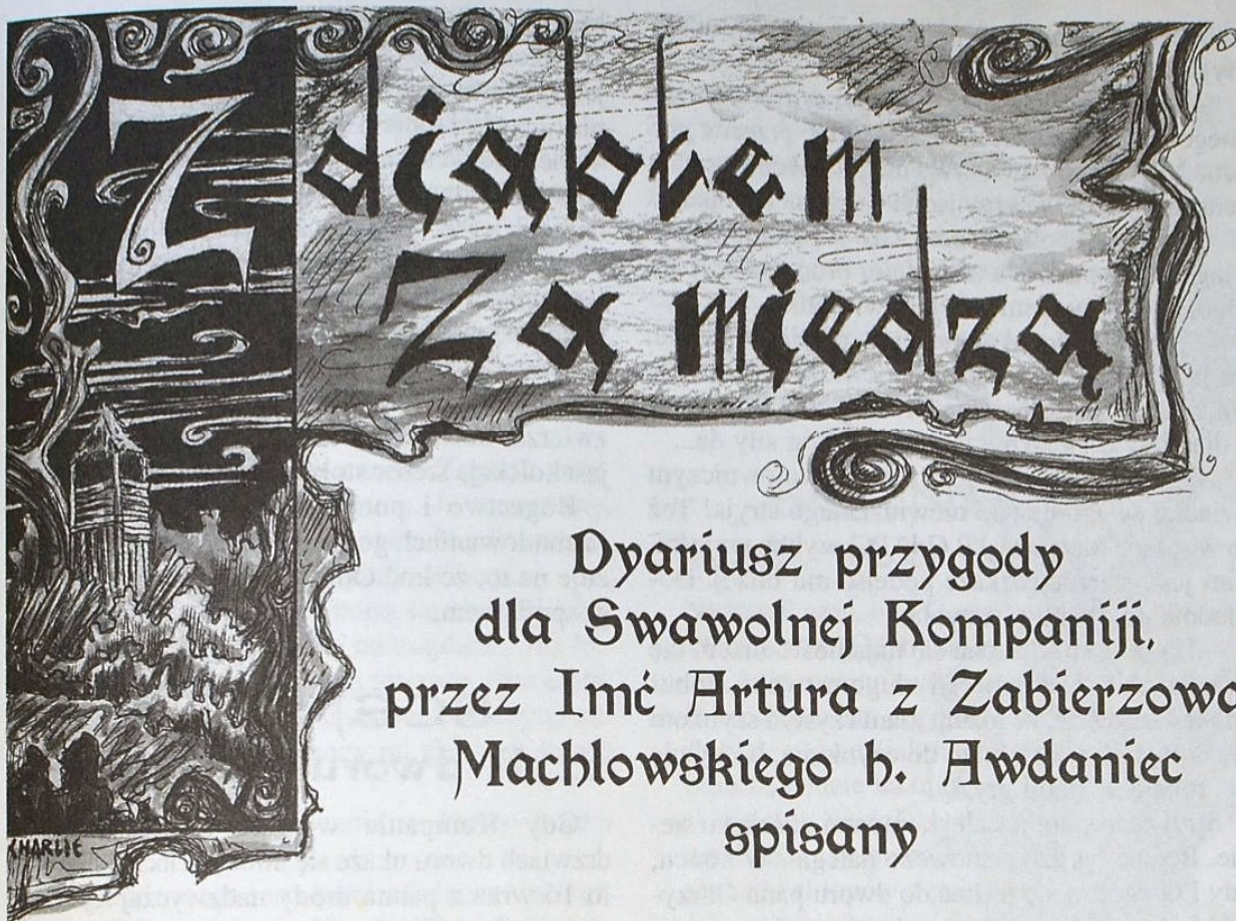 Z diabłem
Za miedzą
Dyariusz przygody
dla Swawolnej Kompaniji,
przez Imć Artura z Zabierzowa
Machlowskiego h. Awdaniec
spisany
CHARLIE